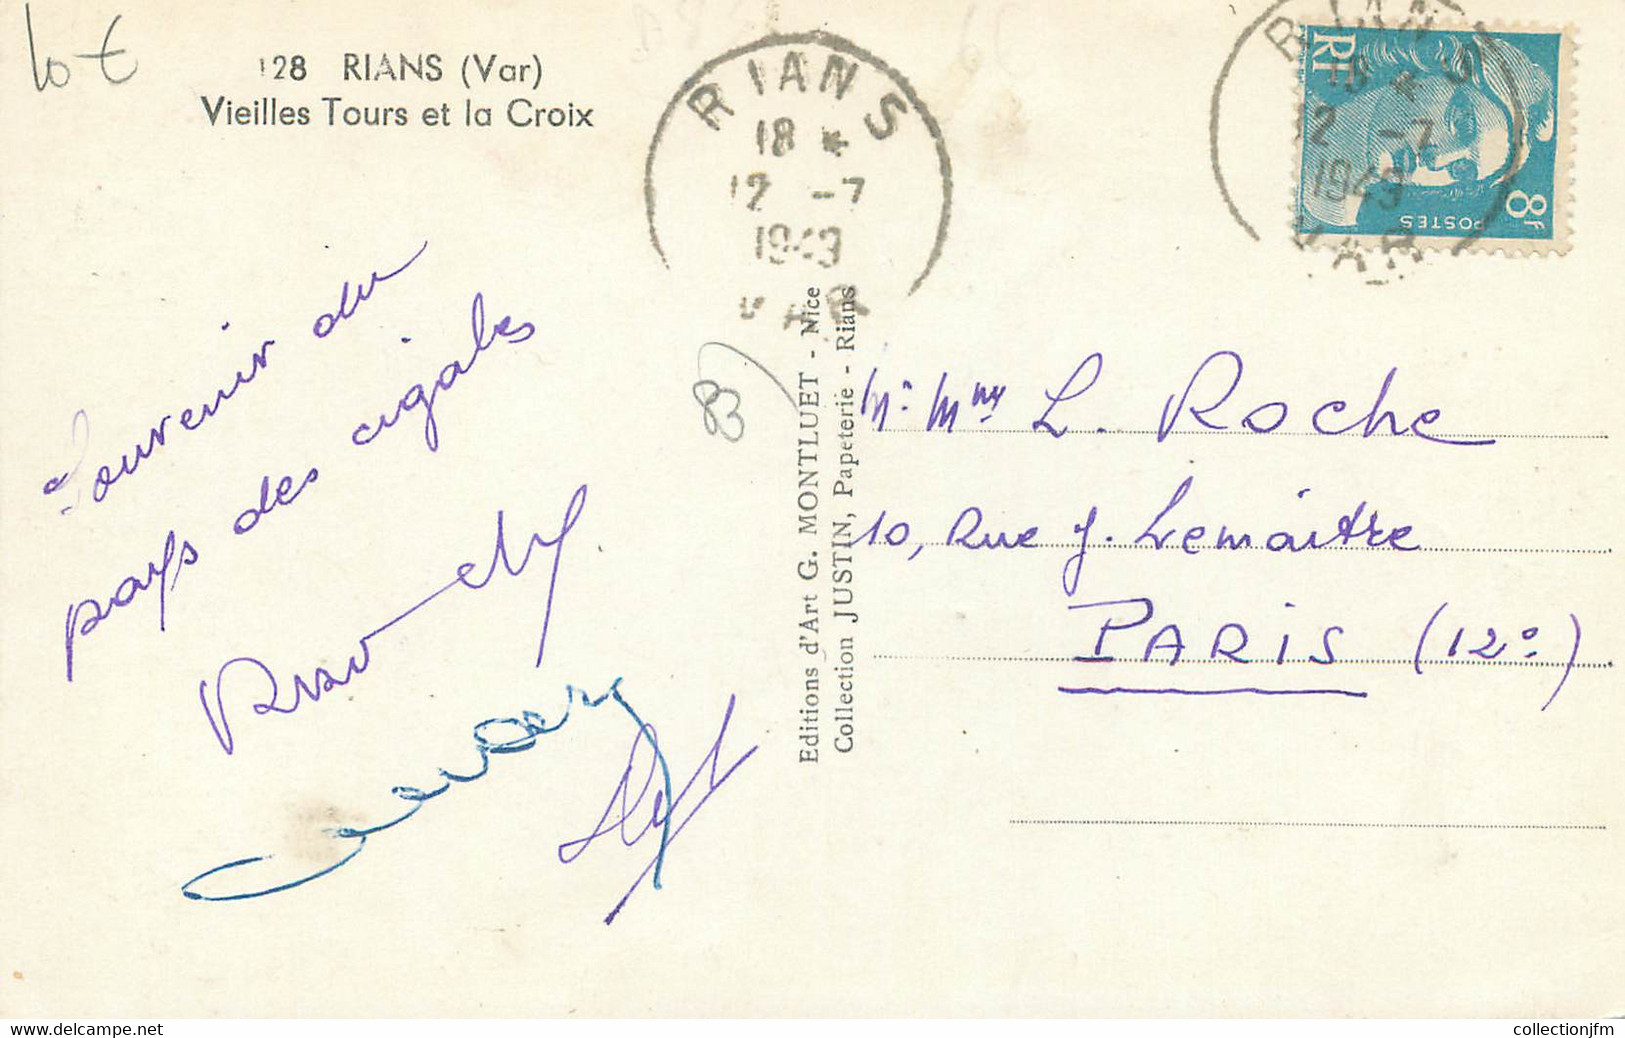 10 €
128 RIANS (Var)
Vieilles Tours et la Croix
RIANS
18 *
12 -7
1949
VAR
RIANS
18 *
12 -7
1949
VAR
RF
8F
POSTES
Souvenir du
pays des cigales
83
Editions d'Art G. MONTLUET - Nice
Collection JUSTIN, Papeterie - Rians
Mr Mme L. Roche
10, Rue J. Lemaitre
PARIS (12e)
www.delcampe.net
collectionjfm